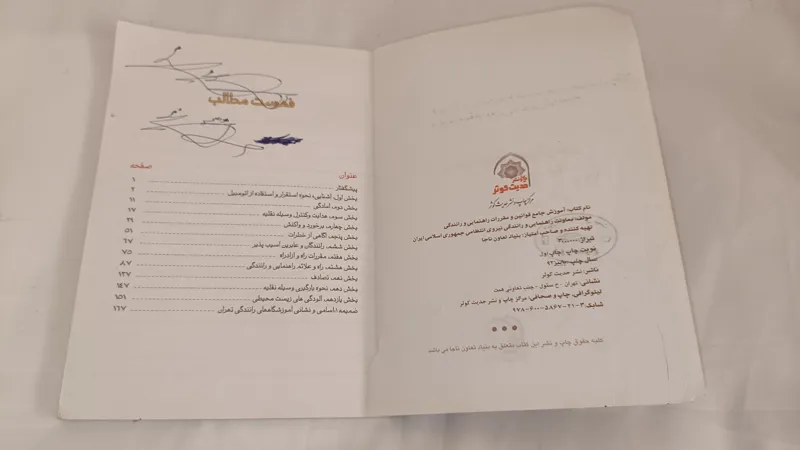 نشر
حدیث کوثر
مرکز چاپ و نشر حدیث کوثر
نام کتاب: آموزش جامع قوانین و مقررات راهنمایی و رانندگی
مولف: معاونت راهنمایی و رانندگی نیروی انتظامی جمهوری اسلامی ایران
تهیه کننده و صاحب امتیاز: بنیاد تعاون ناجا
تیراژ:
نوبت چاپ: چاپ اول
سال چاپ: پاییز ۹۲
ناشر: نشر حدیث کوثر
نشانی: تهران - خ سئول - جنب تعاونی همت
لیتوگرافی، چاپ و صحافی: مرکز چاپ و نشر حدیث کوثر
شابک: ۳-۲۱-۵۸۶۷-۶۰۰-۹۷۸
کلیه حقوق چاپ و نشر این کتاب متعلق به بنیاد تعاون ناجا می باشد
فهرست مطالب
عنوان صفحه
پیشگفتار ۱
بخش اول، آشنایی، نحوه استقرار و استفاده از اتومبیل ۲
بخش دوم، آمادگی ۱۱
بخش سوم، هدایت وکنترل وسیله نقلیه ۱۷
بخش چهارم، برخورد و واکنش ۲۹
بخش پنجم، آگهی از خطرات ۵۱
بخش ششم، رانندگان و عابرین آسیب پذیر ۶۷
بخش هفتم، مقررات راه و آزادراه ۷۵
بخش هشتم، راه و علائم راهنمایی و رانندگی ۸۷
بخش نهم، تصادف ۱۳۷
بخش دهم، نحوه بارگیری وسیله نقلیه ۱۴۷
بخش یازدهم، آلودگی های زیست محیطی ۱۵۱
ضمیمه ۱،اسامی و نشانی آموزشگاهای رانندگی تهران ۱۶۷